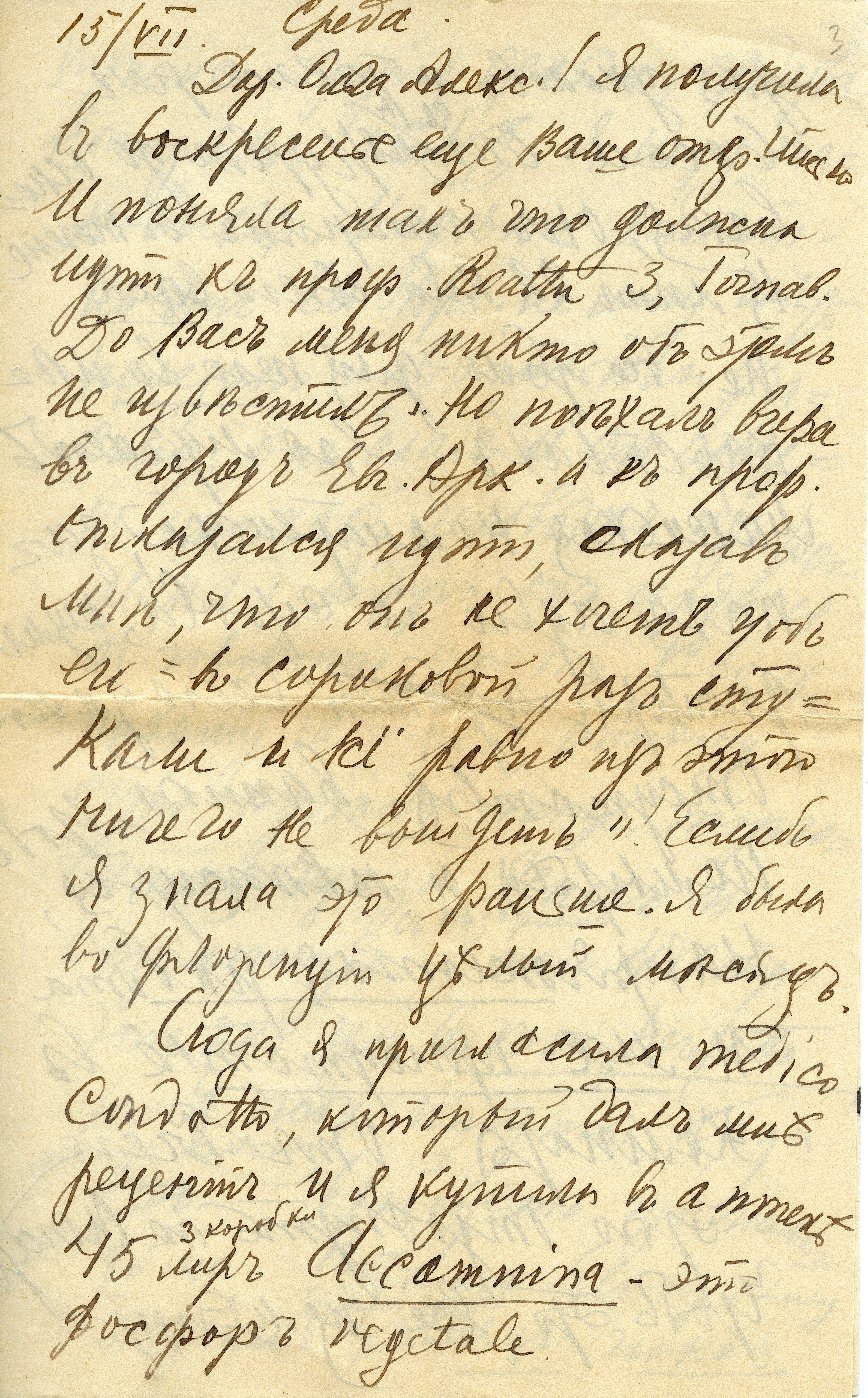 15/VII. Среда.
3
Дор. Ольга Алекс.! Я получила
въ воскресенье еще Ваше откр. письмо
и поняла такъ что должна
идти къ проф. 3, Tornab.
До Васъ меня никто объ этомъ
не извѣстилъ. Но поѣхалъ вчера
въ городъ Ев. Арк. а къ проф.
отказался идти, сказавъ
мнѣ, что онъ не хочетъ чобъ
его "въ сороковой разъ сту=
кали и всё равно изъ этого
ничего не выйдетъ"! Еслибъ
я знала это раньше. Я была
во Флоренціи цѣлый мѣсяцъ.
Сюда я пригласила medico
Condotto, который далъ мнѣ
рецептъ и я купила въ аптекѣ
3 коробки
45 лиръ Accamnina - это
фосфоръ vegetale